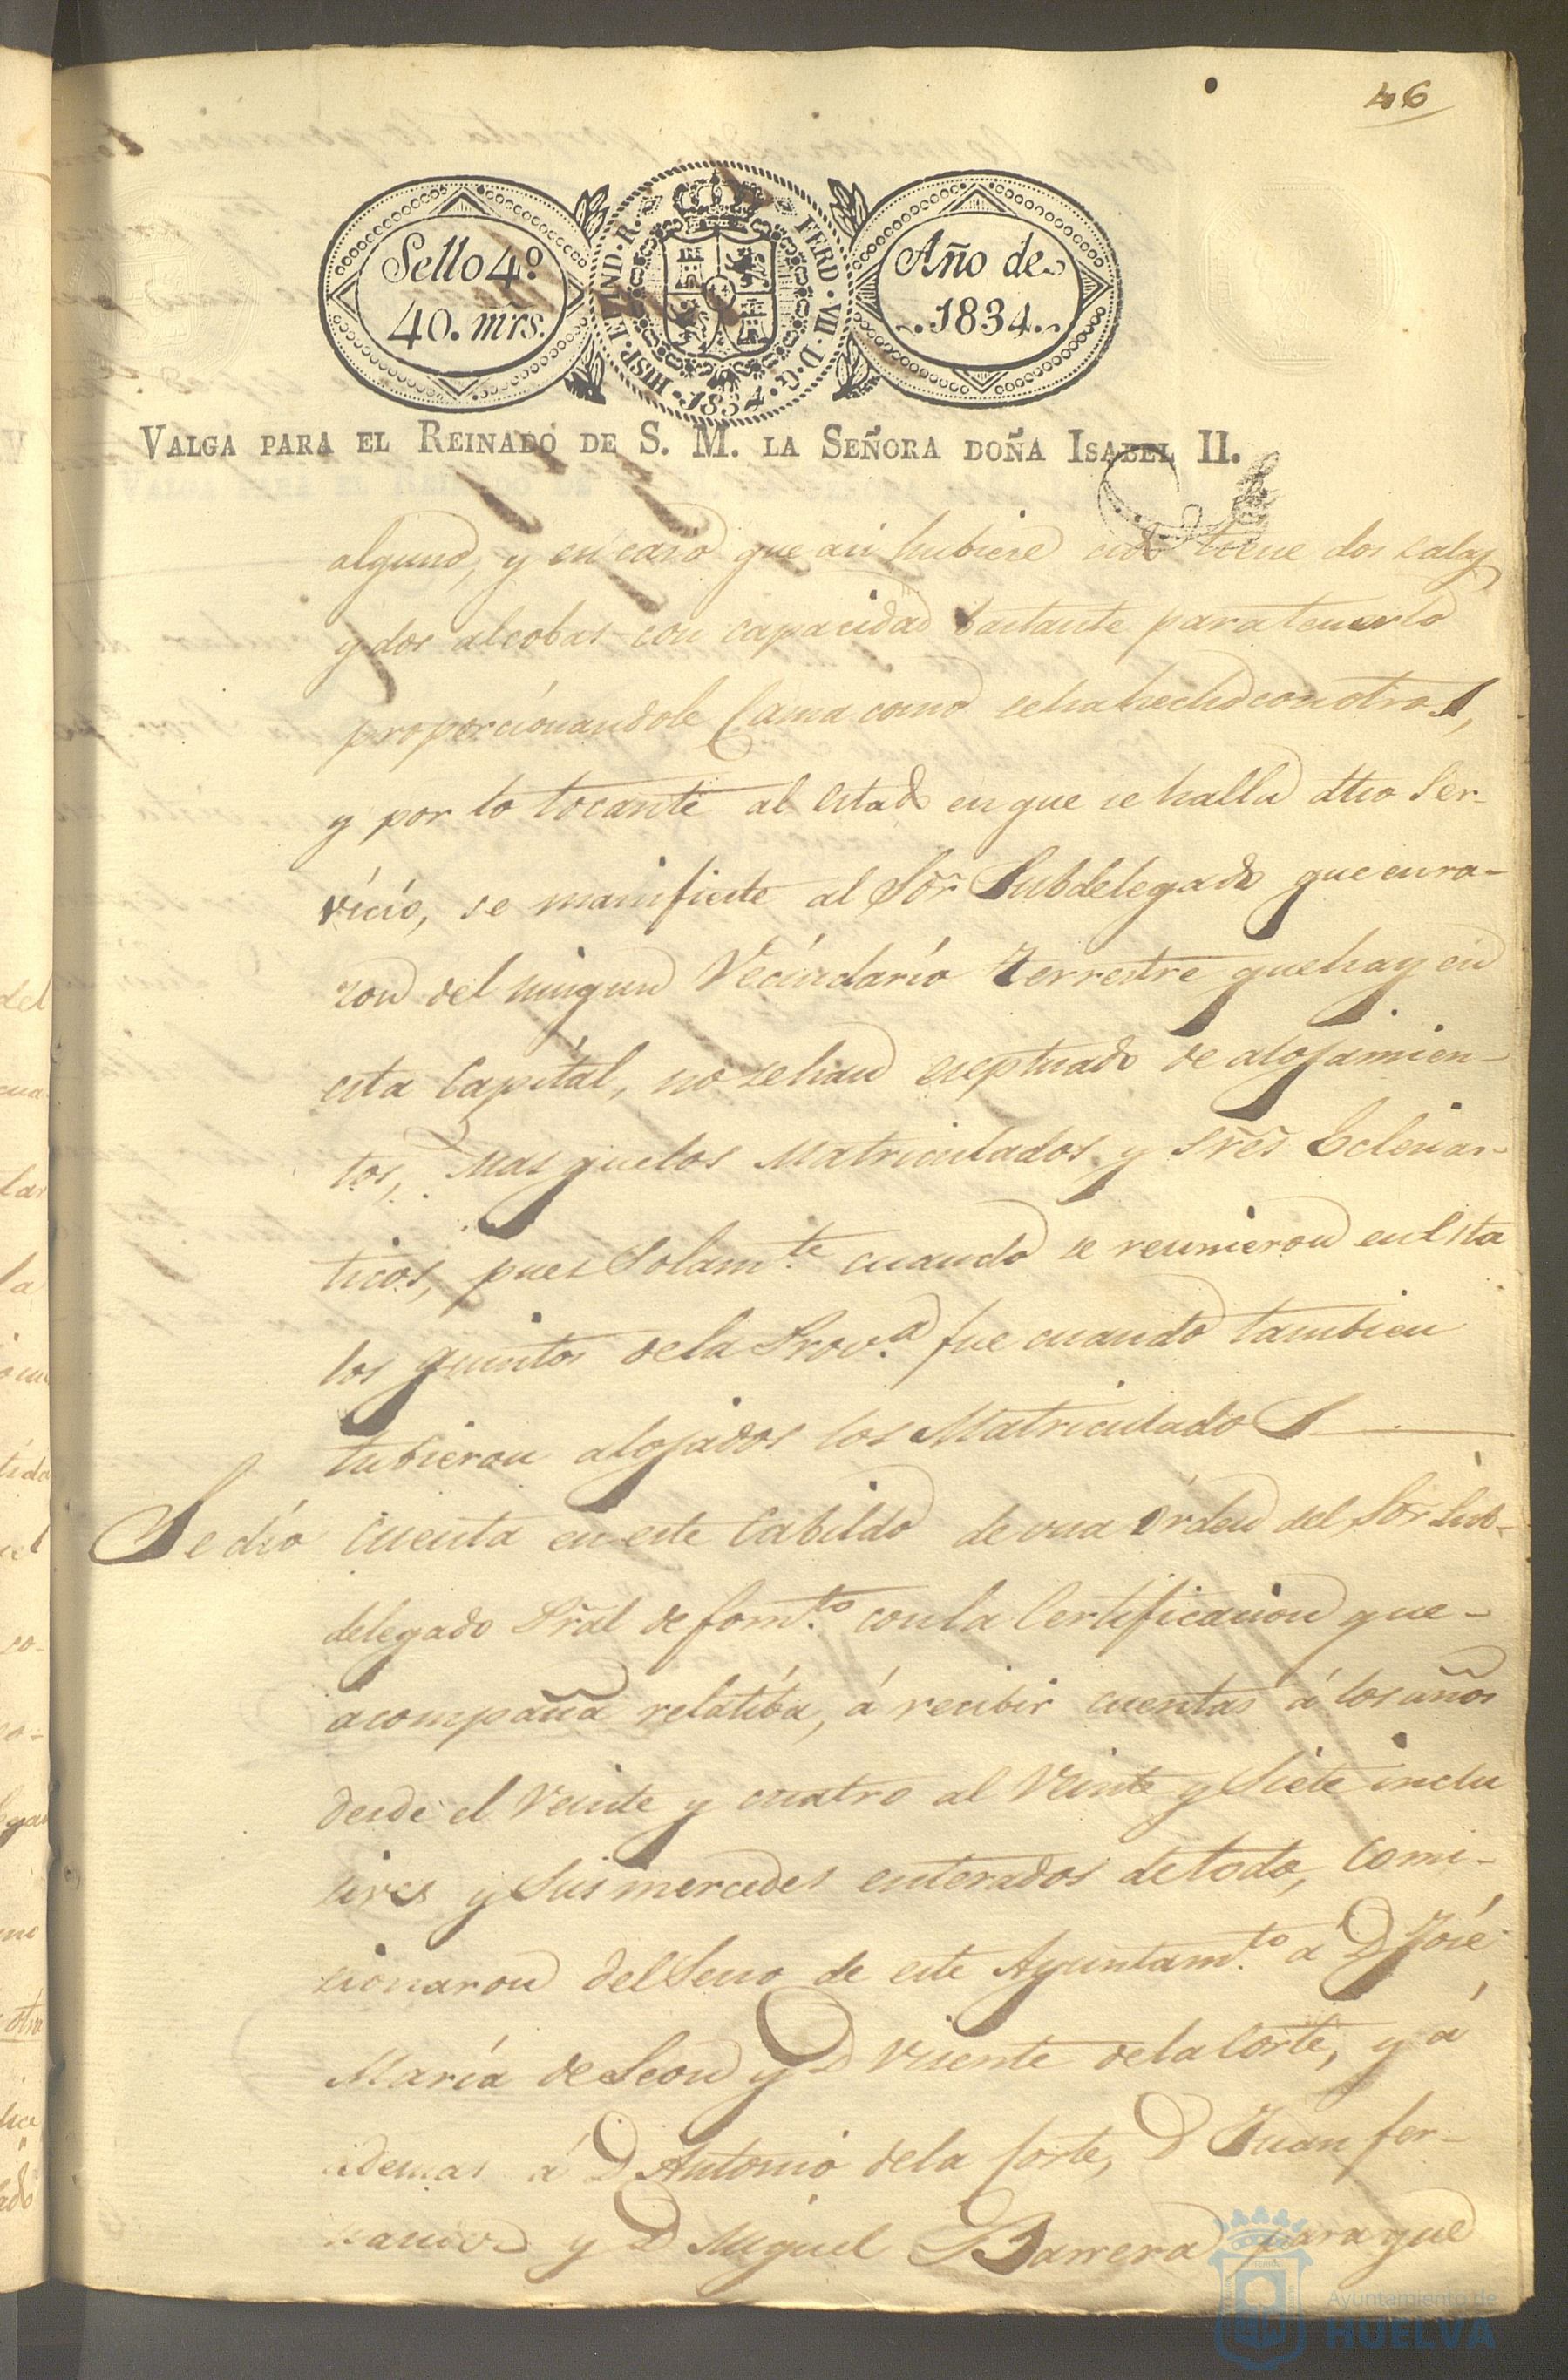 46
Sello 4º
40. mrs.
HISP. ET IND. R.
FERD. VII. D. G.
1834
Año de
1834.
VALGA PARA EL REINADO DE S. M. LA SEÑORA DOÑA ISABEL II.
alguno, y en caso que asi hubiese sido tiene dos salas
y dos alcobas con capacidad bastante para tenerlo
proporcionandole Cama como se ha hecho con otros,
y por lo tocante al estado en que se halla dho Ser-
vicio, se manifieste al Sõr Subdelegado que en ra-
zon del ningun Vecindario terrestre que hay en
esta Capital, no se han eseptuado de alojamien-
tos, mas que los Matriculados y Sres Eclesias-
ticos, pues solam.te cuando se reunieron en Esta
los quintos de la Prov.a fue cuando tambien
tubieron alojados los Matriculados
Se dio cuenta en este Cabildo de una Orden del Sor Sub-
delegado Pral de fom.to con la Certificacion que-
acompaña relatiba, á recibir cuentas á los años
desde el Veinte y cuatro al Veinte y Siete inclu
sives y Sus mercedes enterados de todo, Comi-
sionaron del Seno de este Ayuntam.to a D José
María de Leon y D Visente de la Corte, y á
ademas á D Antonio de la Corte, D Juan fer-
nandes y D Miguel Barrera para que
Ayuntamiento de
HUELVA